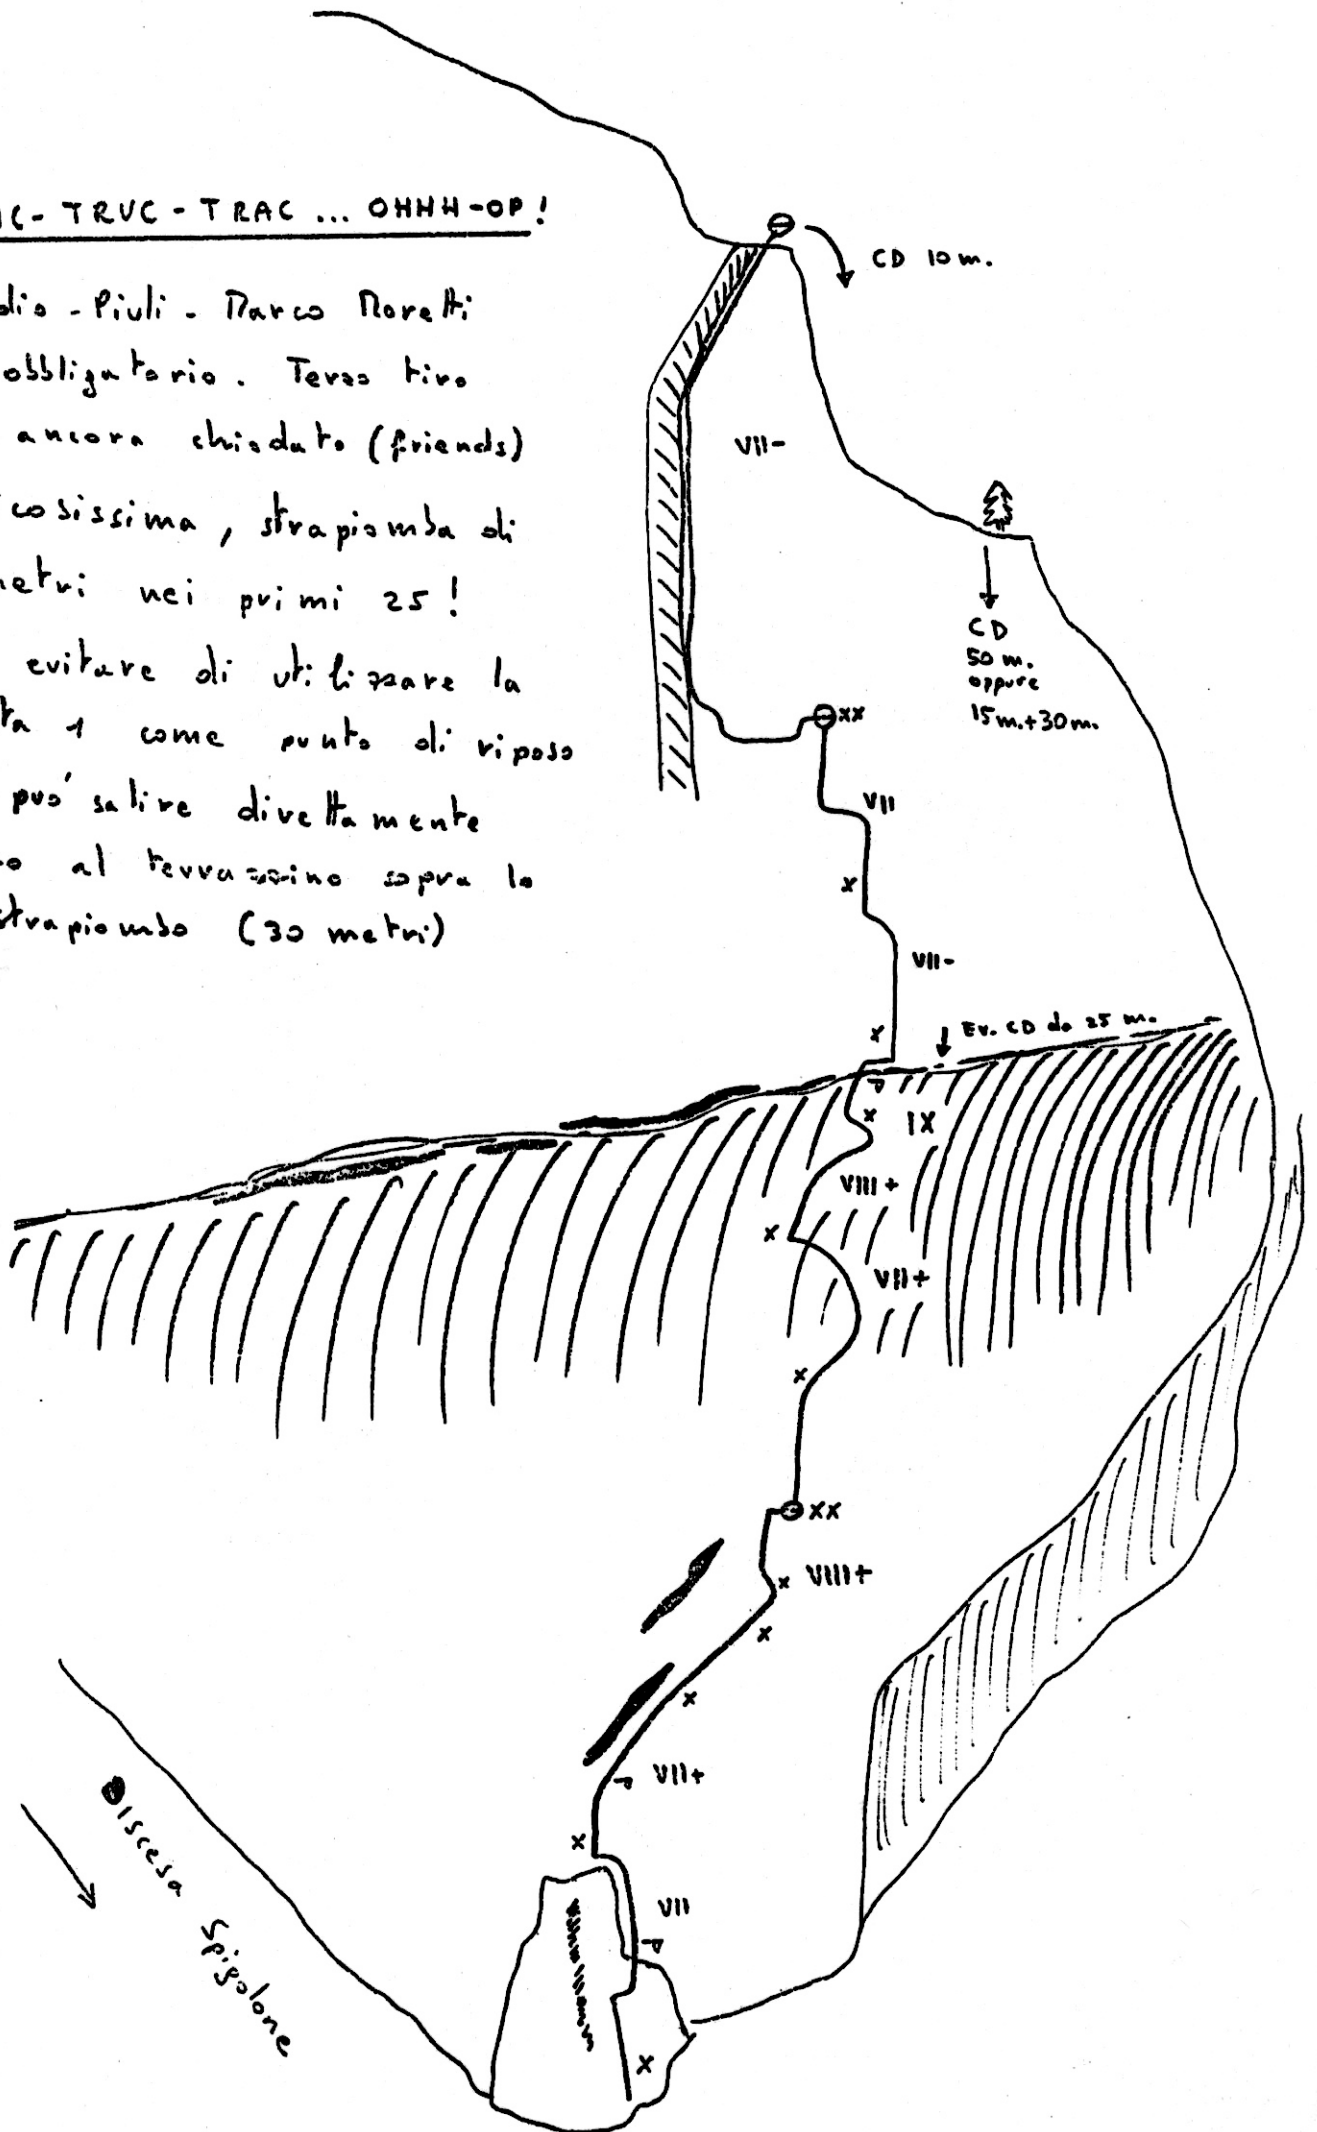 IC - TRUC - TRAC ... OHHH-OP!
dio - Piuli - Marco Moretti
obbligatorio. Terzo tiro
ancora chiodato (friends)
cosissima, strapiomba di
metri nei primi 25!
evitare di utilizzare la
ta 1 come punto di riposo
può salire direttamente
o al terrazzino sopra lo
strapiombo (30 metri)
CD 10 m.
VII-
CD
50 m.
oppure
15m.+30m.
XX
VII
X
VII-
X
Ev. CD da 25 m.
X
IX
VIII+
X
VII+
X
XX
VIII+
X
X
X
VII+
X
VII
X
Discesa Spigolone